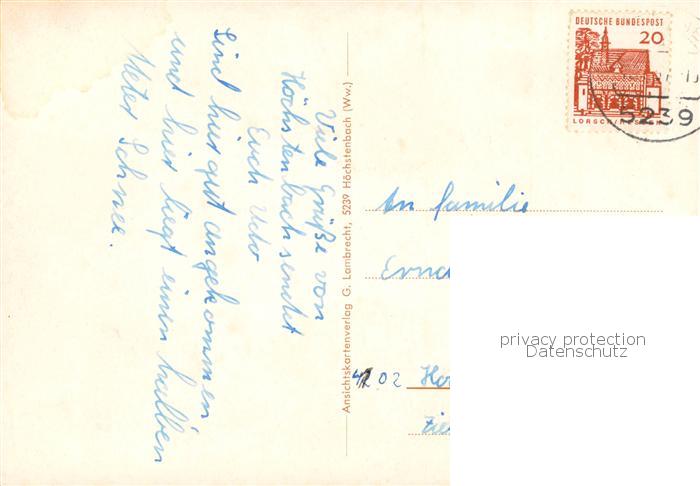 Viele Grüße von
Höchstenbach sendet
Euch Udo
Sind hier gut angekommen
und hier liegt einen halben
Meter Schnee.
Ansichtskartenverlag G. Lambrecht, 5239 Höchstenbach (Ww.)
DEUTSCHE BUNDESPOST
20
LORSCH/HESSEN
5239
An Familie
4102
privacy protection
Datenschutz